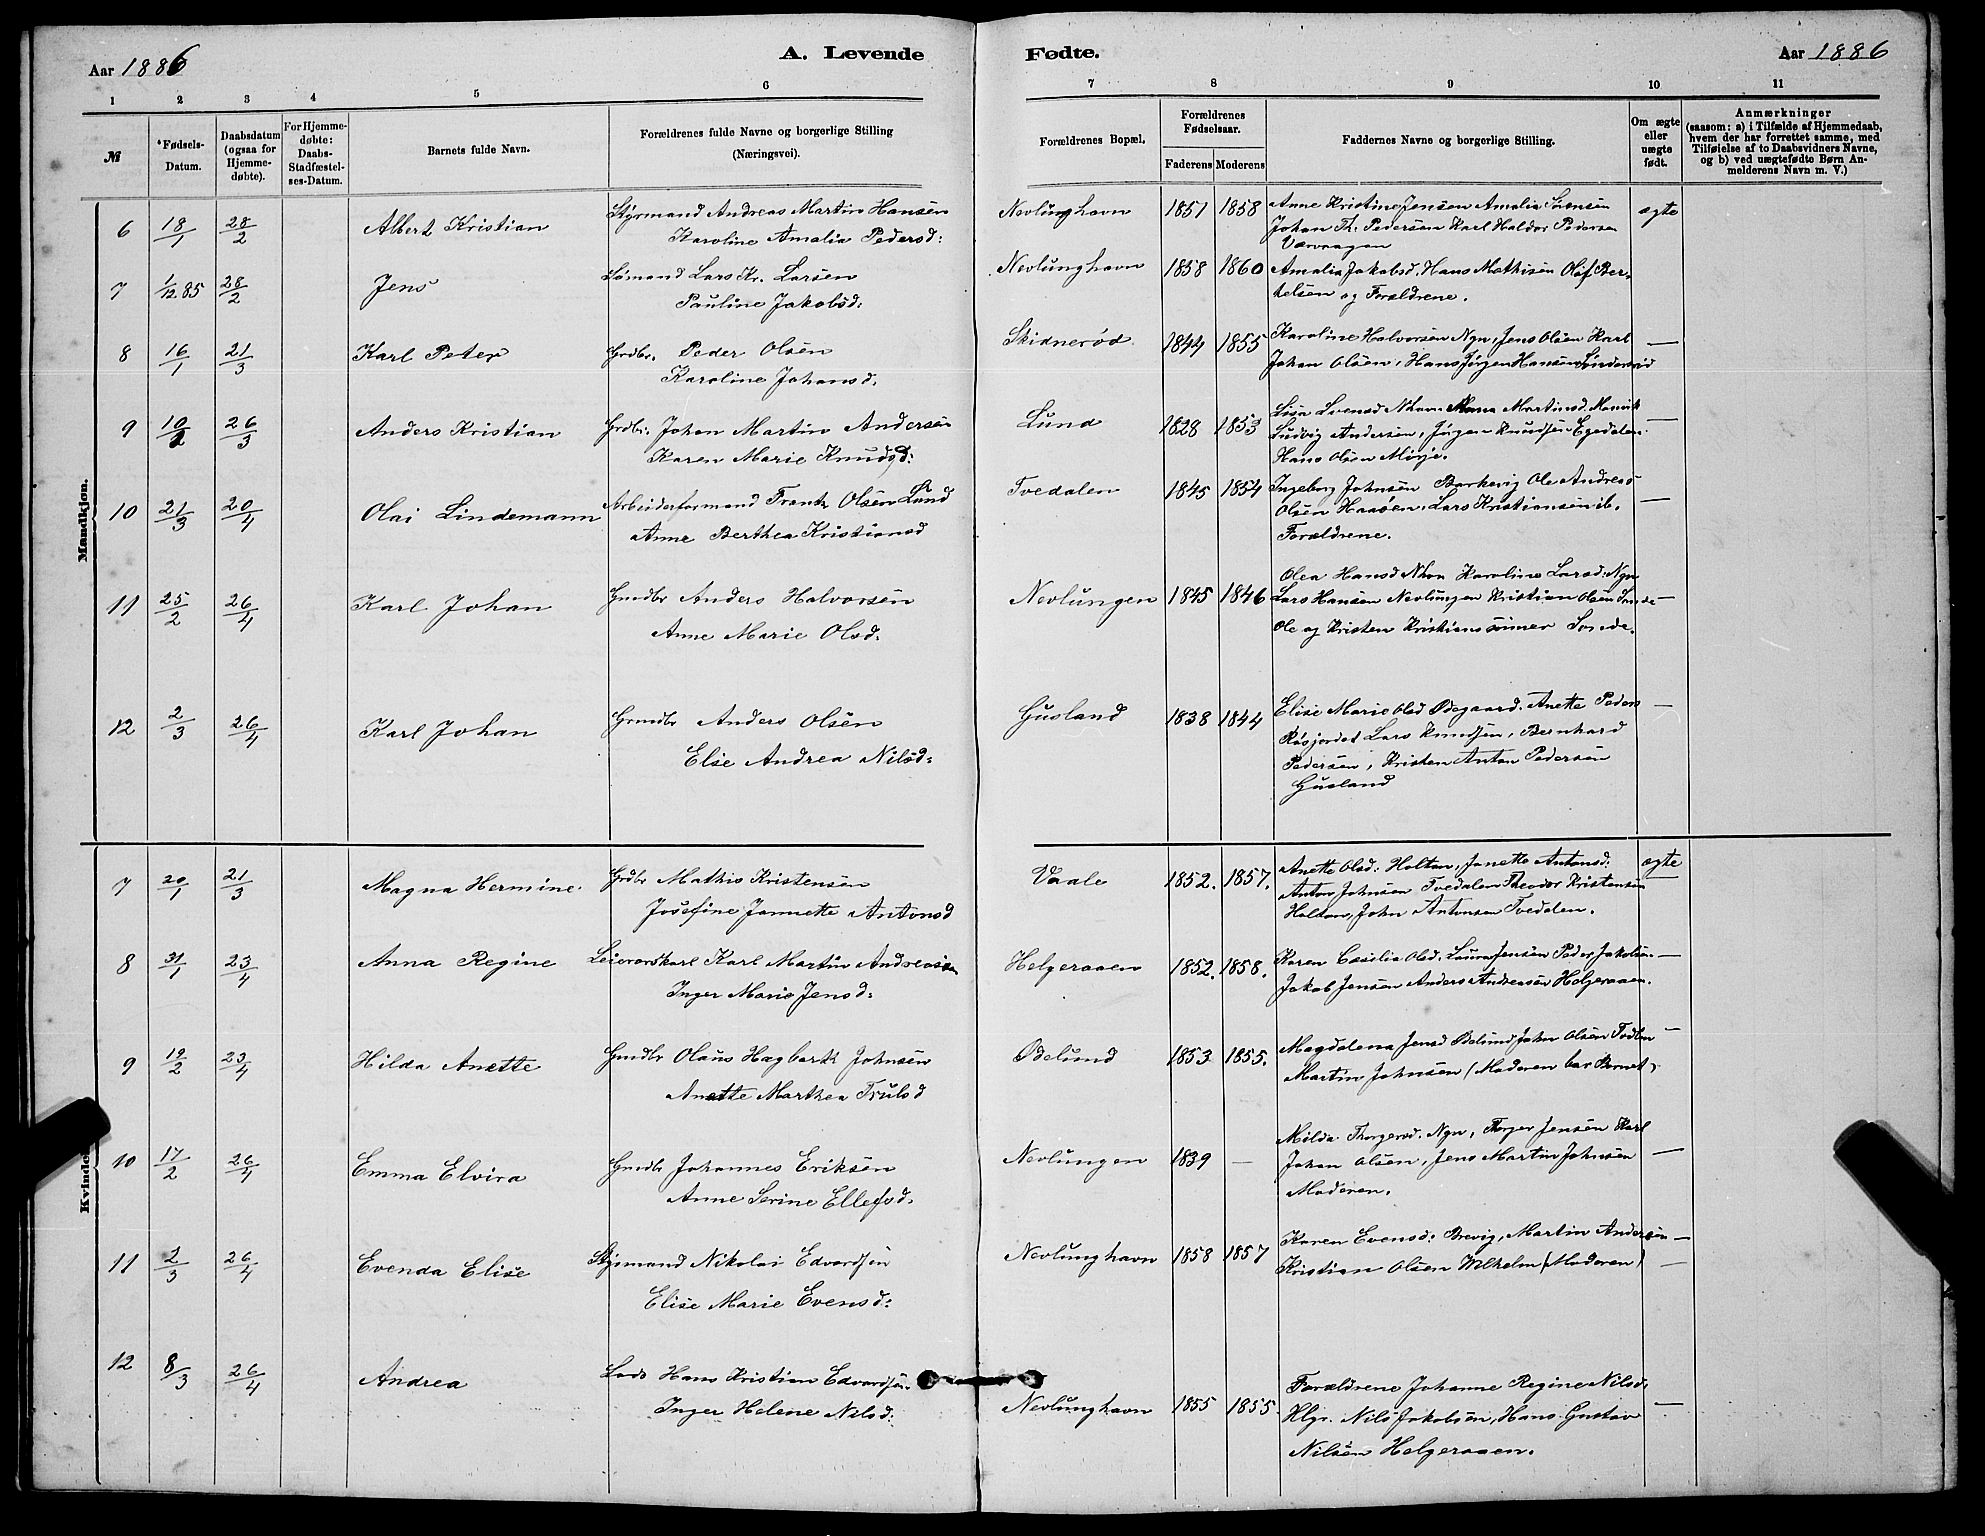 Aar 1886
A. Levende
Fødte.
Aar 1886
1 2 3 4 5 6 7 8 9 10 11
№
*Fødsels-
Datum.
Daabsdatum
(ogsaa for
Hjemme-
døbte).
For Hjemme-
døbte:
Daabs-
Stadfæstel-
ses-Datum.
Barnets fulde Navn.
Forældrenes fulde Navne og borgerlige Stilling
(Næringsvei).
Forældrenes Bopæl.
Forældrenes
Fødselsaar.
Faderens Moderens
Faddernes Navne og borgerlige Stilling.
Om ægte
eller
uægte
født.
Anmærkninger
(saasom: a) i Tilfælde af Hjemmedaab,
hvem der har forrettet samme, med
Tilføielse af to Daabsvidners Navne,
og b) ved uægtefødte Børn An-
melderens Navn m. V.)
Mandkjøn.
6 18/1 28/2 Albert Kristian
Styrmand Andreas Martin Hansen
Karoline Amalia Pedersd:
Nevlunghavn 1851 1858
Anne Kristine Jensen Amalia Sørensen
Johan Th: Pedersen Karl Haldor Pedersen
Værvaagen
ægte
7 1/12 85 28/2 Jens
Sømand Lars Kr. Larsen
Pauline Jakobsd:
Nevlunghavn 1858 1860
Amalia Jakobsd. Hans Mathisen Olaf Ber-
telsen og Forældrene.
8 16/1 21/3 Karl Peter
Grdbr. Peder Olsen
Karoline Johansd.
Skidnerød 1844 1855
Karoline Halvorsen Ngn, Jens Olsen Karl
Johan Olsen, Hans Jørgen Hansen Sønderød
—
9 10/2 26/3 Anders Kristian
Grdbr: Johan Martin Andersen
Karen Marie Knudsd:
Lund 1828 1853
Lisa Svensd Nhavn Anna Martinsd. Manvik
Ludvig Andersen, Jørgen Knudsen Egedalen.
Hans Olsen Mørje.
—
10 21/3 20/4 Olai Lindemann
Arbeiderformand Frantz Olsen Lund
Anne Berthea Kristiansd
Tvedalen 1845 1854
Ingeborg Johnsen Barkevig Ole Andreas
Olsen Haaøen, Lars Kristiansen ib.
Forældrene.
—
11 25/2 26/4 Karl Johan
Grndbr Anders Halvorsen
Anne Marie Olsd.
Nevlungen 1845 1846
Olea Hansd Nhvn Karoline Larsd: Ngn
Lars Hansen Nevlungen Kristian Olsen Sonde
Ole og Kristen Kristianssønner Sonde.
—
12 2/3 26/4 Karl Johan
Grndbr Anders Olsen
Elise Andrea Nilsd:
Gusland 1838 1844
Elise Marie Olsd Ødegaard. Anette Peders
Røsjordet Lars Knudsen, Bernhard
Pedersen, Kristen Anton Pedersen
Gusland
—
Kvinde
7 20/1 21/3 Magna Hermine.
Grdbr Mathis Kristensen
Josefine Jannette Antonsd
Vaale 1852. 1857.
Anette Olsd: Holtan, Janette Antonsd:
Anton Johnsen Tvedalen Theodor Kristensen
Holtan, John Antonsen Tvedalen.
ægte
8 31/1 23/4 Anna Regine
Leievorskarl Karl Martin Andreasen
Inger Marie Jensd:
Helgeraaen 1852. 1858.
Karen Cecilia Olsd. Laura Jensen Peder Jakobsen
Jakob Jensen Anders Andreasen Helgeraaen.
—
9 12/2 23/4 Hilda Anette
Grndbr Olaus Hagbarth Johnsen
Anette Marthea Trulsd
Ødelund 1853 1855.
Magdalena Jensd Ødelund John Olsen Todten
Martin Johnsen (Moderen bar Barnet)
—
10 17/2 26/4 Emma Elvira
Grndbr Johannes Eriksen
Anne Serine Ellefsd.
Nevlungen 1839 —
Milda Thorgersd. Ngn, Thorger Jensen Karl
Johan Olsen, Jens Martin Johnsen
Moderen.
—
11 2/3 26/4 Evenda Elise
Styrmand Nikolai Edvardsen
Elise Marie Evensd:
Nevlunghavn 1858 1857
Karen Evensd: Brevig, Martin Andersen
Kristian Olsen Wilhelm (Moderen)
—
12 8/3 26/4 Andrea
Lods Hans Kristian Edvardsen.
Inger Helene Nilsd:
Nevlunghavn 1855 1855.
Forældrene Johanne Regine Nilsd.
Hlgr. Nils Jakobsen, Hans Gustav
Nilsen Helgeraaen.
—